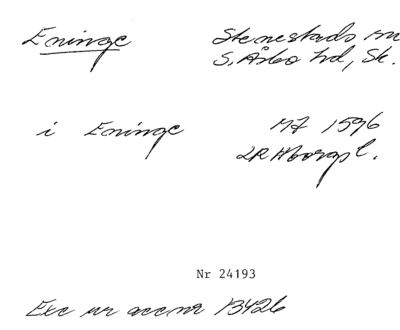 Eninge Stenestads sn
S. Åsbo hd, Sk.
i Eninge M7 1596
LR Hborgs l.
Nr 24193
Exc ur accnr 13426